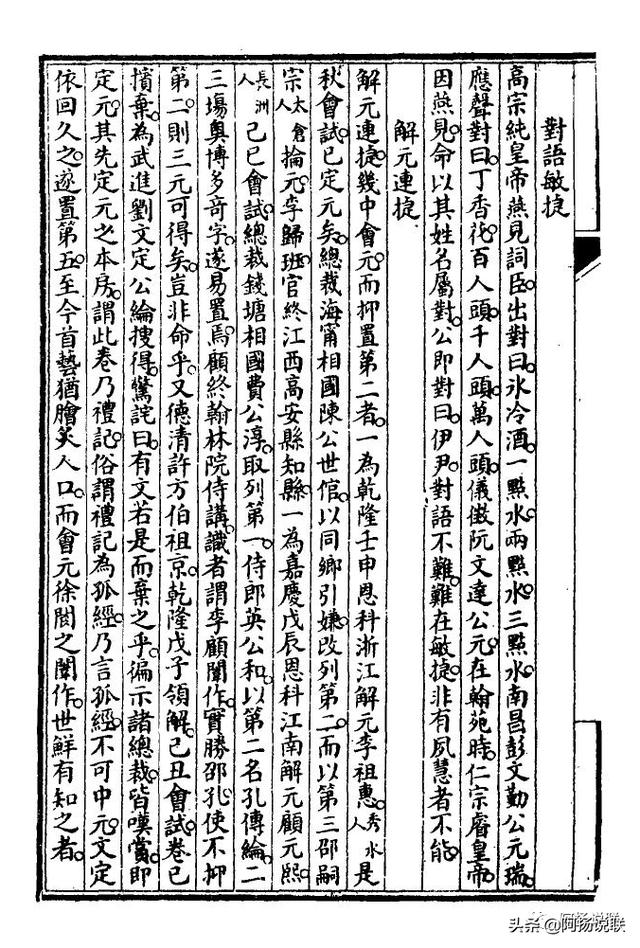 對語敏捷
高宗純皇帝燕見詞臣出對曰氷冷酒一點水兩點水三點水南昌彭文勤公元瑞
應聲對曰丁香花百人頭千人頭萬人頭儀徵阮文達公元在翰苑時仁宗睿皇帝
因燕見命以其姓名屬對公即對曰伊尹對語不難難在敏捷非有夙慧者不能
解元連捷
解元連捷幾中會元而抑置第二者一為乾隆壬申恩科浙江解元李祖惠秀水人是
秋會試已定元矣總裁海甯相國陳公世倌以同鄉引嫌改列第二而以第三邵嗣
宗太倉人掄元李歸班官終江西高安縣知縣一為嘉慶戊辰恩科江南解元顧元熙
長洲人己巳會試總裁錢塘相國費公淳取列第一侍郎英公和以第二名孔傳綸二
三塲奧博多奇字遂易置焉顧終翰林院侍講識者謂李顧闈作實勝邵孔使不抑
第二則三元可得矣豈非命乎又德清許方伯祖京乾隆戊子領解己丑會試卷已
擯棄為武進劉文定公綸搜得驚詫曰有文若是而棄之乎徧示諸總裁皆嘆賞即
定元其先定元之本房謂此卷乃禮記俗謂禮記為孤經乃言孤經不可中元文定
依回久之遂置第五至今首藝猶膾炙人口而會元徐烺之闈作世鮮有知之者
阿扬说联
头条@阿扬说联